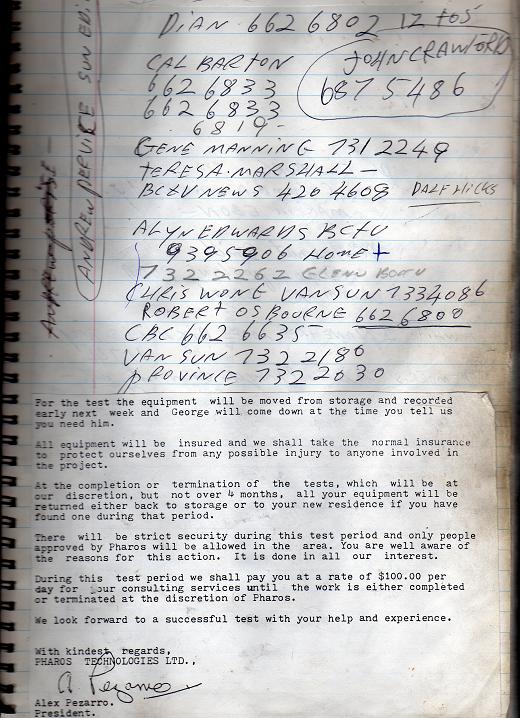 DIAN 662 6802 12 to 5
CAL BARTON
662 6833
662 6833
6819
JOHN CRAWFORD
687 5486
GENE MANNING 731 2249
TERESA MARSHALL —
BCTV NEWS 420 4608 DALE HICKS
ALYN EDWARDS BCTV
9395906 HOME +
732 2262 GLENN
CHRIS WONG VAN SUN 7334086
ROBERT OSBOURNE 662 6800
CBC 662 6635
VAN SUN 732 2180
PROVINCE 732 2030
ANDREW
SUN
For the test the equipment will be moved from storage and recorded
early next week and George will come down at the time you tell us
you need him.
All equipment will be insured and we shall take the normal insurance
to protect ourselves from any possible injury to anyone involved in
the project.
At the completion or termination of the tests, which will be at
our discretion, but not over 4 months, all your equipment will be
returned either back to storage or to your new residence if you have
found one during that period.
There will be strict security during this test period and only people
approved by Pharos will be allowed in the area. You are well aware of
the reasons for this action. It is done in all our interest.
During this test period we shall pay you at a rate of $100.00 per
day for your consulting services until the work is either completed
or terminated at the discretion of Pharos.
We look forward to a successful test with your help and experience.
With kindest regards,
PHAROS TECHNOLOGIES LTD.,
A. Pezarro
Alex Pezarro.
President.